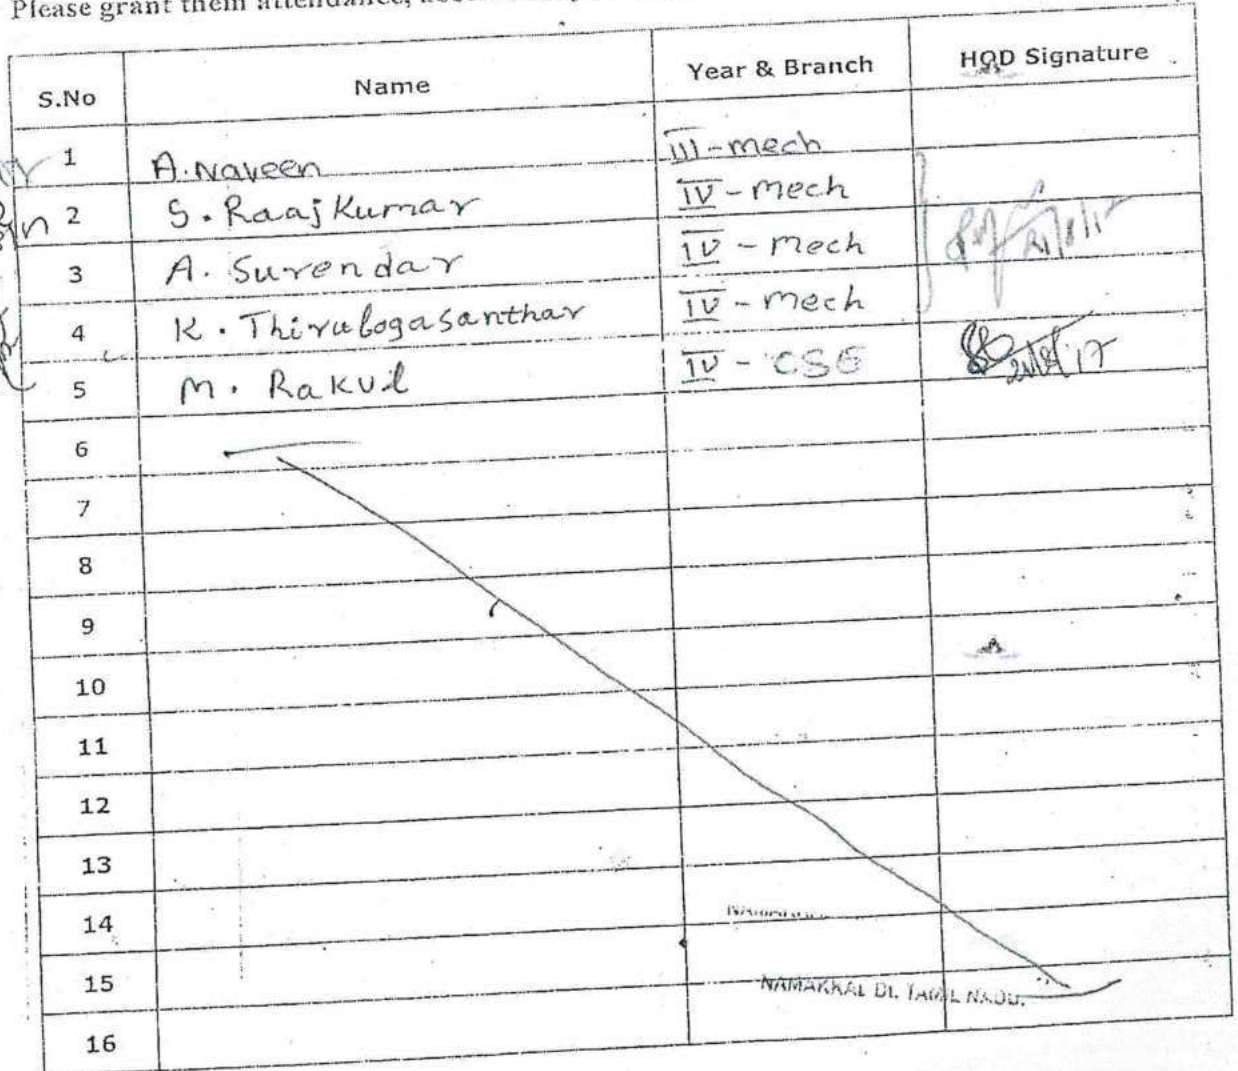 Please grant them attendance,
S.No Name Year & Branch HOD Signature
1 A. Naveen III - mech
2 S. Raaj Kumar IV - mech
3 A. Surendar IV - mech
4 K. Thirulogasanthar IV - mech
5 M. Rakul IV - CSE 21/8/17
6
7
8
9
10
11
12
13
14
15 NAMAKKAL Dt. TAMIL NADU.
16